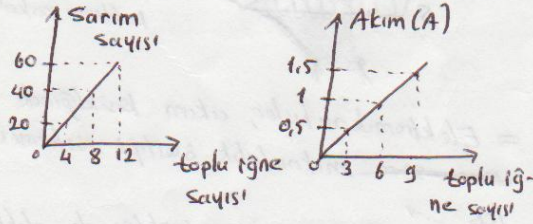 Sarım
sayısı
60
40
20
0
4 8 12
toplu iğne
sayısı
Akım (A)
1,5
1
0,5
0
3 6 9
toplu iğ-
ne sayısı